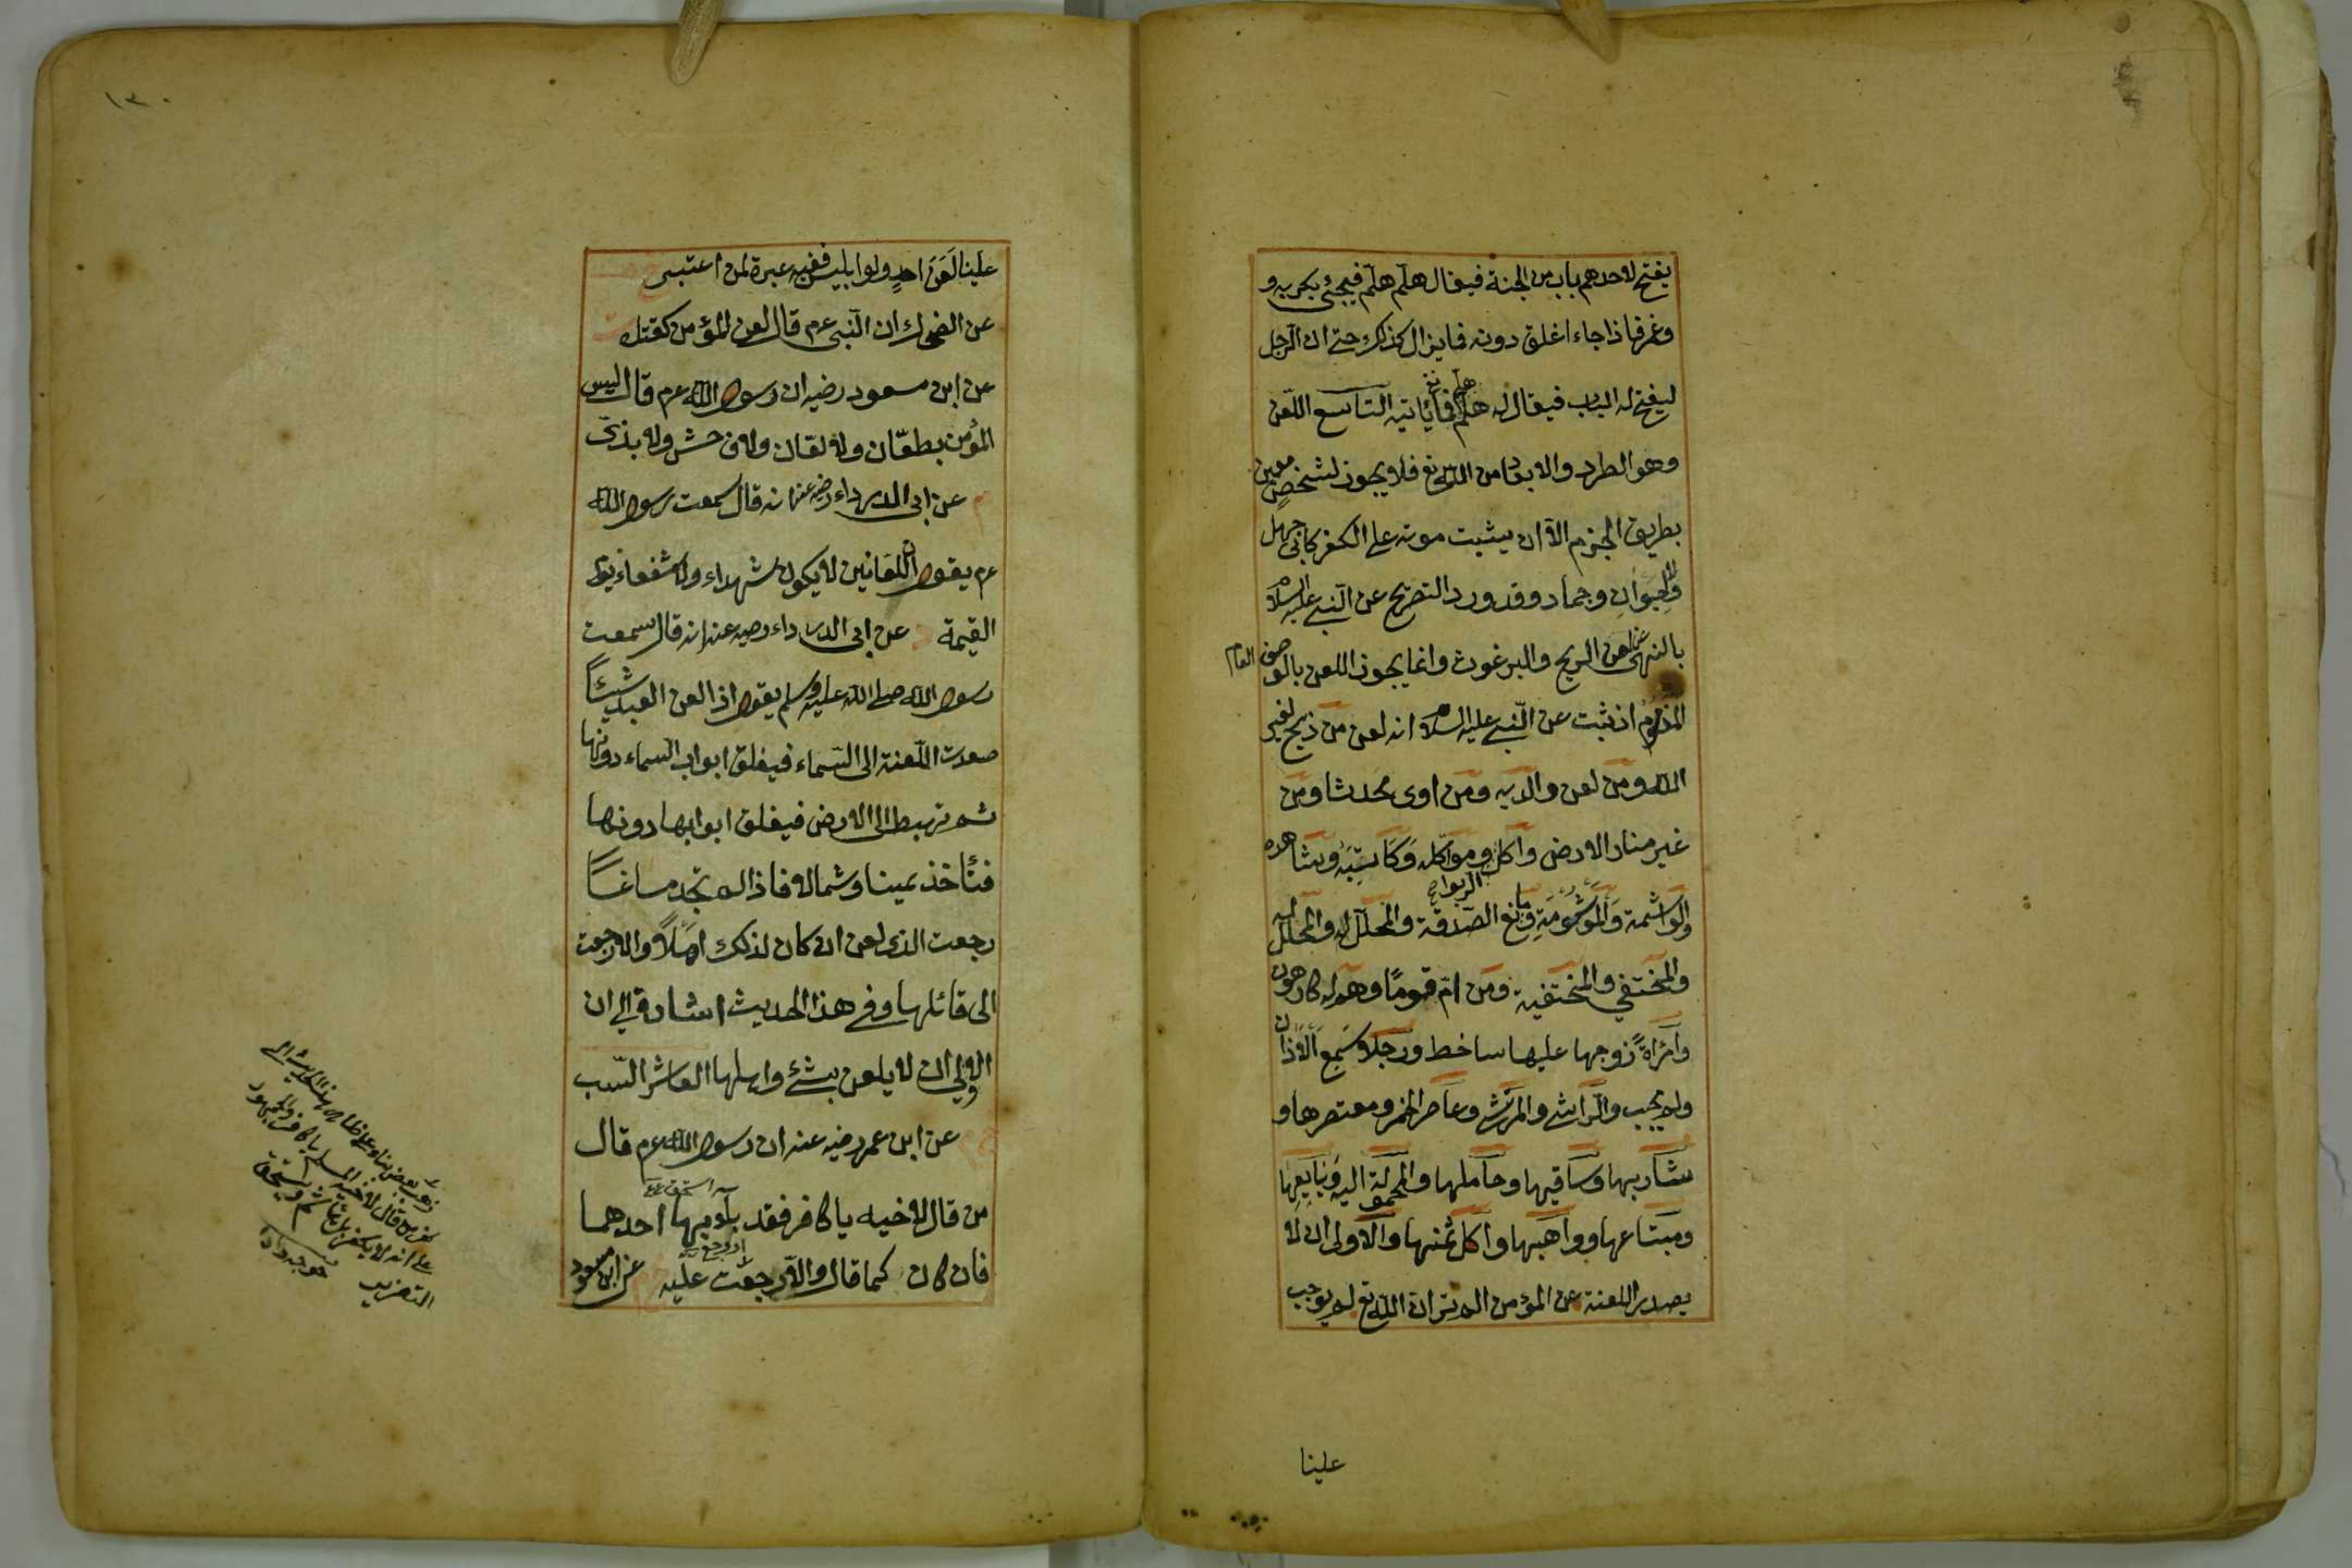 يفتح لاحدهم باب من الجنة فيقال هلم هلم فيجئ بكربه و
وغم فاذا جاء اغلق دونه فما يزال كذلك حتى ان الرجل
ليفتح له الباب فيقال له هلم هلم فما يأتيه التاسع اللعن
وهو الطرد والابعاد من الله تع فلا يجوز لشخص معين
بطريق الجزم الا ان يثبت موته على الكفر كابى جهل
ولا لحيوان وجماد وقد ورد التصريح عن النبى عليه السلام
بالنهى عن لعن الريح والبرغوث وانما يجوز اللعن بالوصف العام
المذموم اذ ثبت عن النبى عليه السلام انه لعن من ذبح لغير
الله ومن لعن والديه ومن اوى محدثا ومن
غير منار الارض وآكل الربوا وموكله وكاتبه وشاهده
والواشمة والموشومة ومانع الصدقة والمحلل له والمحلل له
والمختفي والمختفية ومن ام قوما وهم له كارهون
وامرأة زوجها عليها ساخط ورجلا سمع الاذان
ولم يجب والراشى والمرتشى وعاصر الخمر ومعتصرها و
شاربها وساقيها وحاملها والمحمولة اليه وبايعها
ومبتاعها وواهبها وآكل ثمنها والاولى ان لا
يصدر اللعنة عن المؤمن الم تر ان الله تع لم يوجب
علينا
١٣٠
علينا لعن احد ولو ابليس ففيه عبرة لمن اعتبر
عن الضحاك ان النبى عم قال لعن المؤمن كقتله
عن ابن مسعود رضيه ان رسول الله عم قال ليس
المؤمن بطعان ولا لعان ولا فاحش ولا بذى
عن ابى الدرداء رضيه عنه انه قال سمعت رسول الله
عم يقول ان اللعانين لا يكون شهداء ولا شفعاء يوم
القيمة عن ابى الدرداء رضيه عنه انه قال سمعت
رسول الله صلى الله عليه وسلم يقول اذا لعن العبد شيئا
صعدت اللعنة الى السماء فيغلق ابواب السماء دونها
ثم تهبط الى الارض فيغلق ابوابها دونها
فتأخذ يمينا وشمالا فاذا لم تجد مساغا
رجعت الذى لعن ان كان لذلك اهلا والا رجعت
الى قائلها وفى هذا الحديث اشارة الى ان
الاولى ان لا يلعن بشئ واهلها العاشر السب
عن ابن عمر رضيه عنه ان رسول الله عم قال
من قال لاخيه يا كافر فقد باء بها احدهما
فان كان كما قال والا رجعت عليه عن ابن مسعود